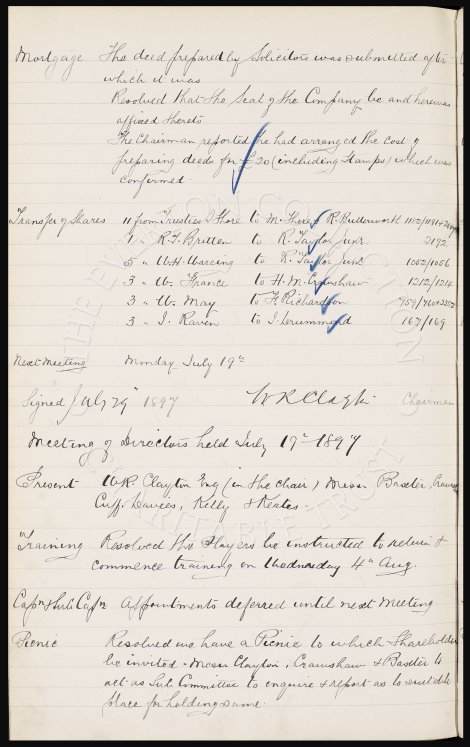 Mortgage The deed prepared by Solicitors was submitted after
which it was
Resolved that the Seal of the Company be and hereby was
affixed thereto
The Chairman reported he had arranged the cost of
preparing deeds for £20 (including Stamps) which was
confirmed.
Transfer of Shares 11 from Trustees I Shore to M. Shore & R. Butterworth
1 " R. I. Britten to R. Taylor Junr 2192
5 " W. H. Wareing to R. Taylor Junr. 1052/1056
3 " W. France to H. M. Crawshaw 1212/1214
3 " W. May to F Richardson 959/960+2352
3 " J. Raven to J. Drummond 167/169
Next Meeting Monday July 19th
Signed July 29 1897 W R Clayton Chairman
Meeting of Directors held July 19th 1897
Present W. R. Clayton Esq (in the chair) Messrs Baxter,
Cuff, Davies, Kelly & Keates.
Training Resolved the Players be instructed to return &
commence training on Wednesday 4th Aug.
Capn & Sub Capn Appointments deferred until next Meeting
Picnic Resolved we have a Picnic to which Shareholders
be invited - Messrs Clayton, Crawshaw & Baxter to
act as Sub Committee to enquire & report as to suitable
place for holding same.
THE EVERTON COLLECTION
CHARITABLE TRUST